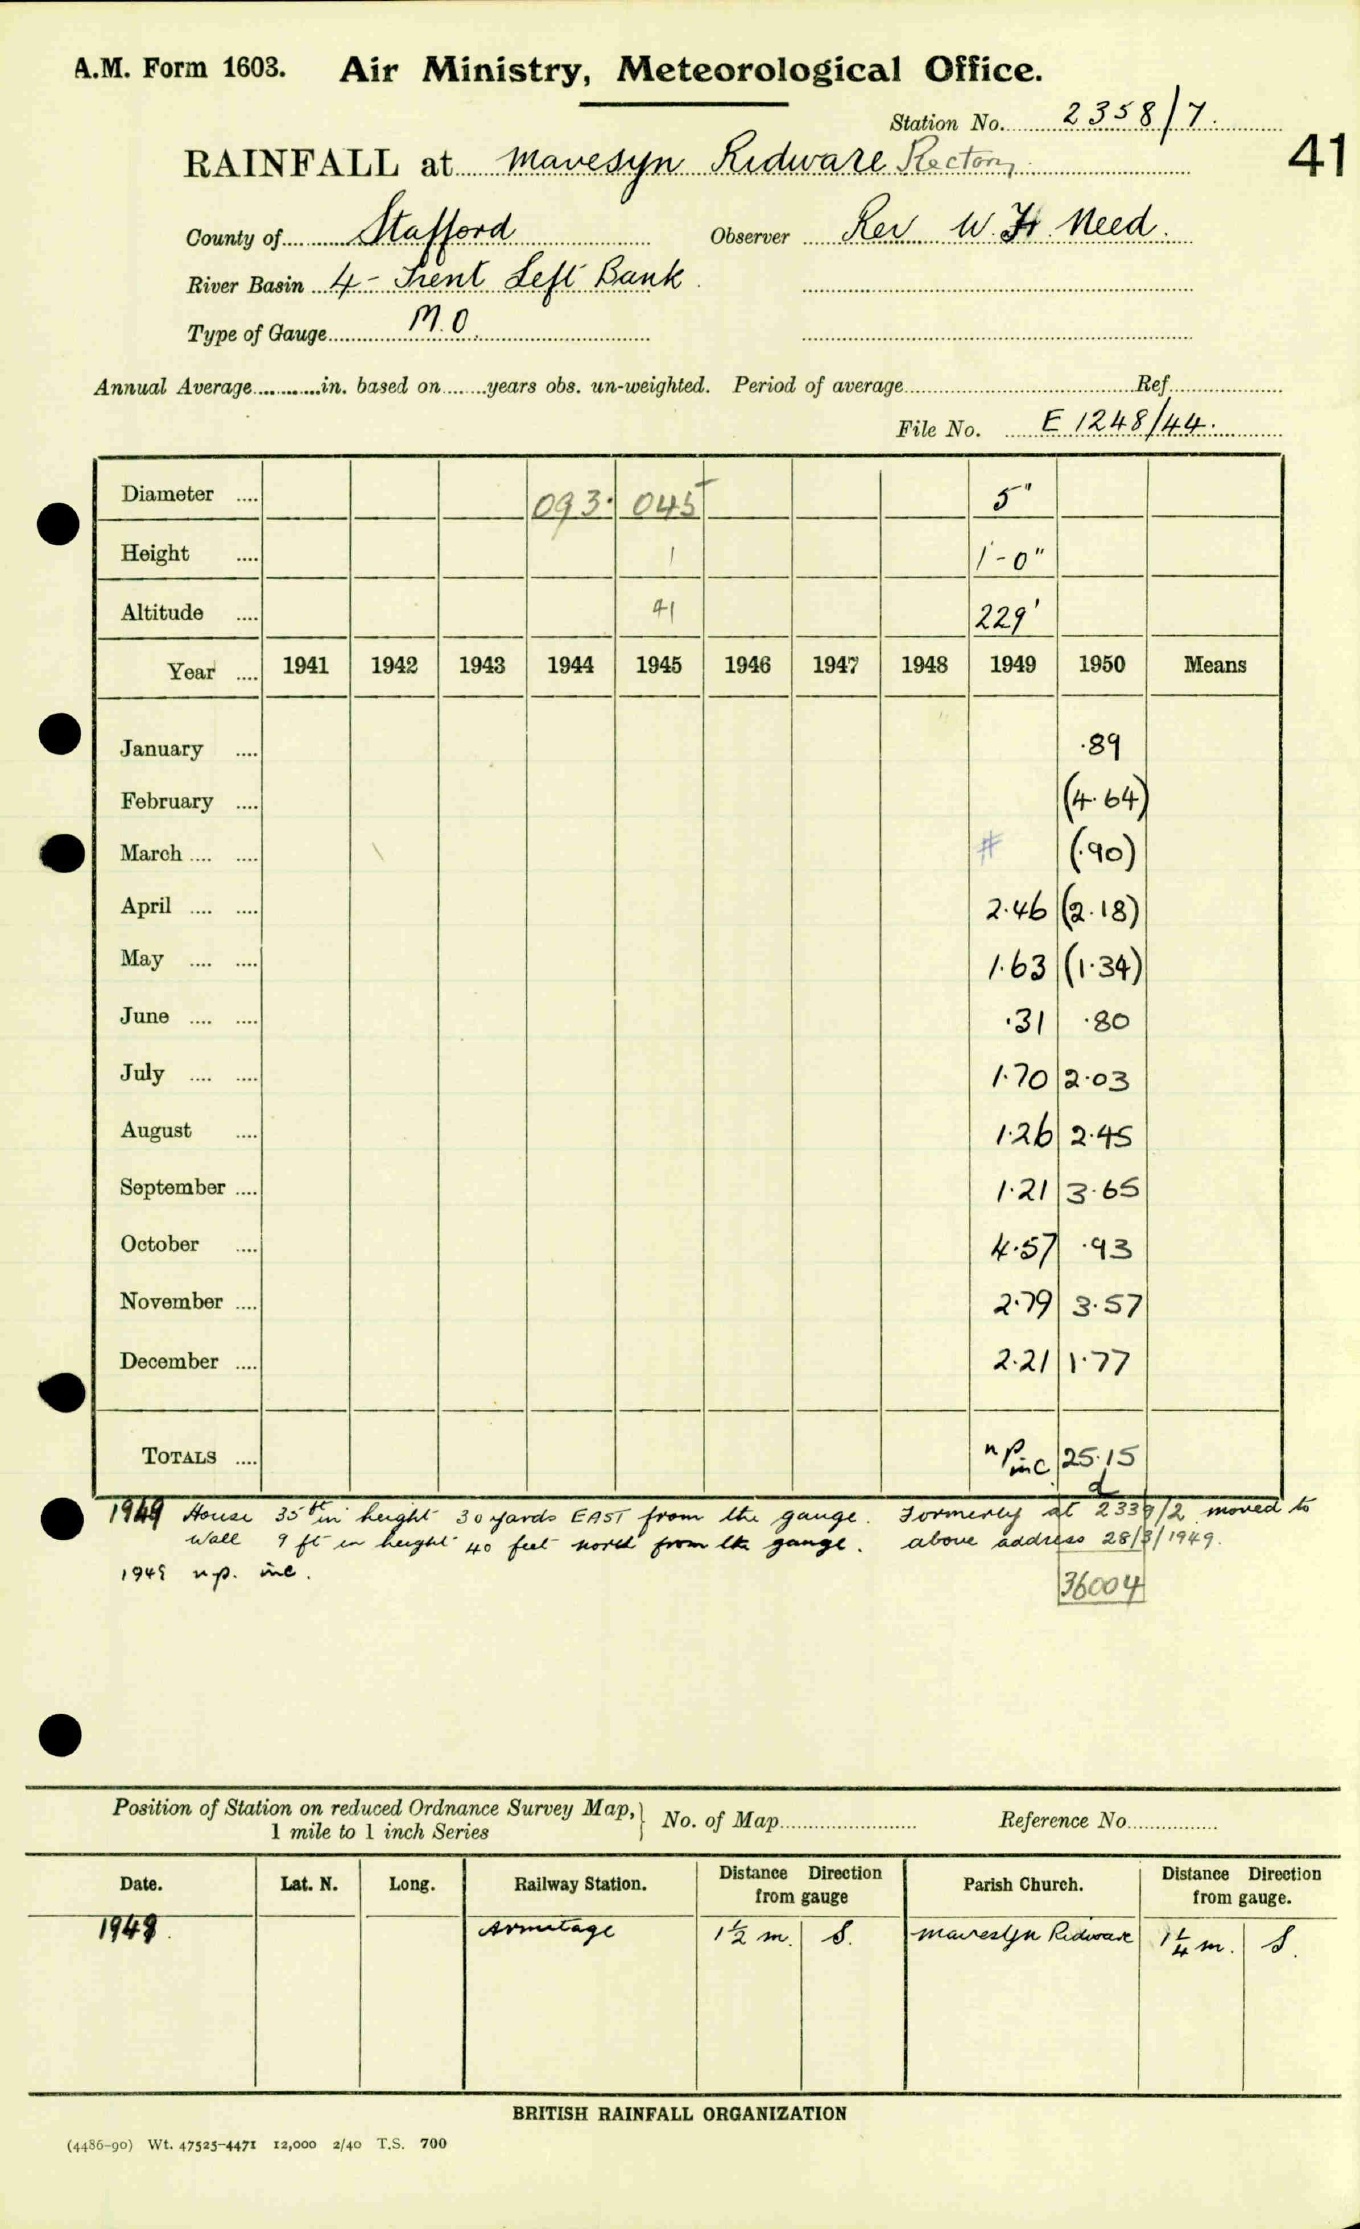 A.M. Form 1603. Air Ministry, Meteorological Office.
Station No. 2358/7.
41
RAINFALL at Mavesyn Ridware Rectory
County of Stafford Observer Rev W. H. Need.
River Basin 4 - Trent Left Bank.
Type of Gauge M.O.
Annual Average in. based on years obs. un-weighted. Period of average Ref.
File No. E 1248/44.
Diameter 093. 045 5"
Height 1 1'-0"
Altitude 41 229'
Year 1941 1942 1943 1944 1945 1946 1947 1948 1949 1950 Means
January .89
February (4.64)
March # (.90)
April 2.46 (2.18)
May 1.63 (1.34)
June .31 .80
July 1.70 2.03
August 1.26 2.45
September 1.21 3.65
October 4.57 .93
November 2.79 3.57
December 2.21 1.77
TOTALS np inc 25.15
d
1949 House 35ft in height 30 yards EAST from the gauge. Formerly at 2339/2 moved to
Wall 9 ft in height 40 feet north from the gauge. above address 28/3/1949.
1949 n.p. inc.
36004
Position of Station on reduced Ordnance Survey Map, } No. of Map Reference No.
1 mile to 1 inch Series
Date. Lat. N. Long. Railway Station. Distance Direction from gauge Parish Church. Distance Direction from gauge.
1949. Armitage 1½ m. S. Mavesyn Ridware 1¼ m. S.
BRITISH RAINFALL ORGANIZATION
(4486-90) Wt. 47525-4471 12,000 2/40 T.S. 700